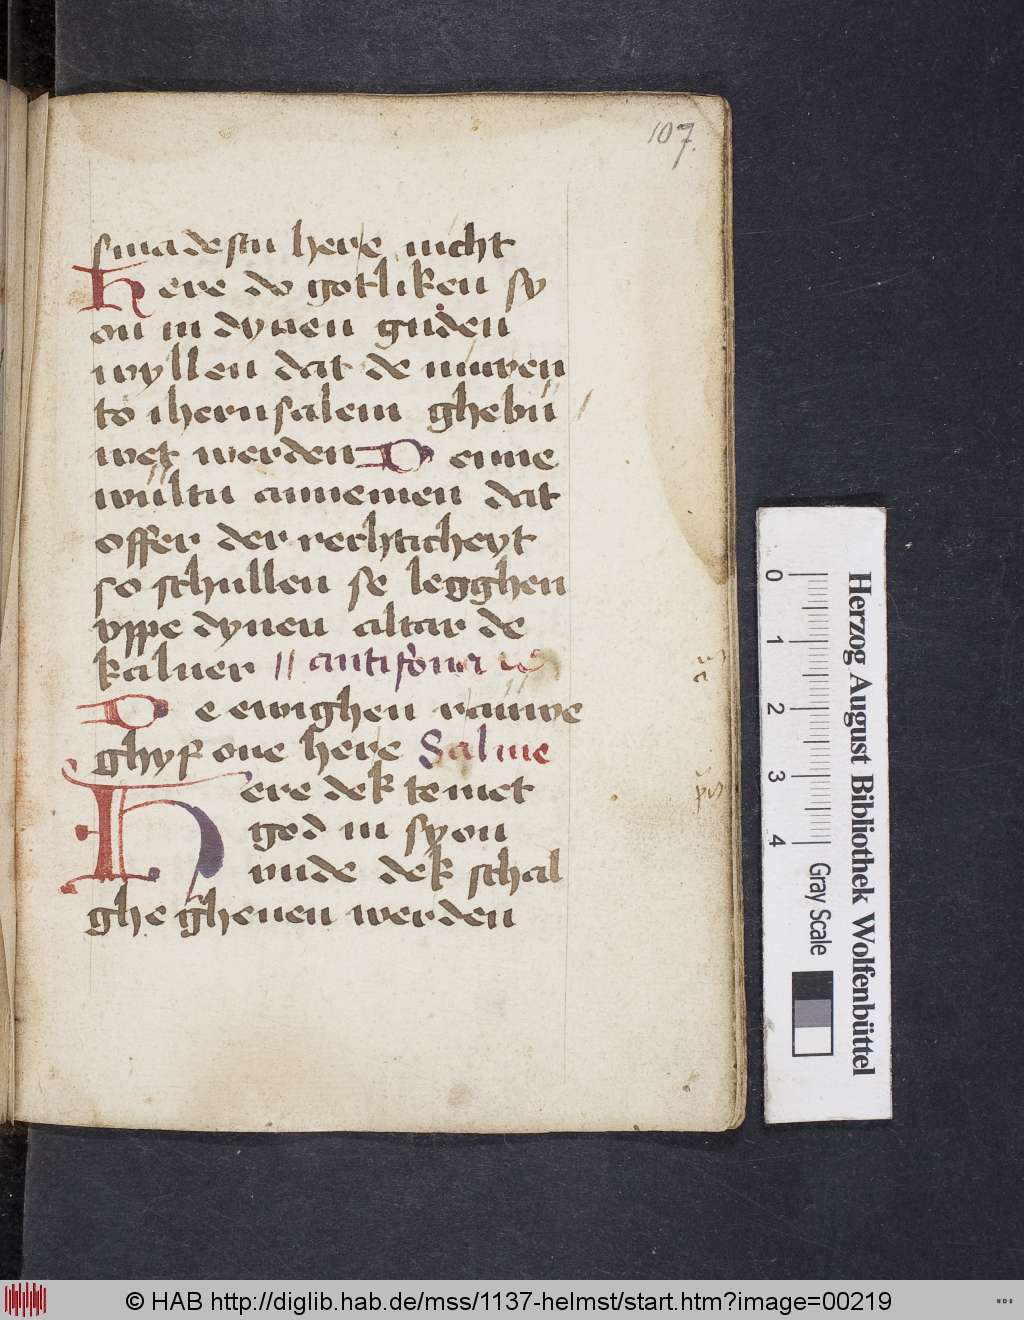 107.
smadestu here nicht
Here do gotliken sy
on in dynen guden
wyllen dat de muren
to iherusalem ghebu
wet werden Denne
wultu annemen dat
offer der rechticheyt
so schullen se legghen
vppe dynen altar de
kaluer // antifona
De ewighen rauwe
ghyf one here Salme
Here dek temet
god in syon
vnde dek schal
ghegheuen werden
0 1 2 3 4
Gray Scale
Herzog August Bibliothek Wolfenbüttel
© HAB http://diglib.hab.de/mss/1137-helmst/start.htm?image=00219